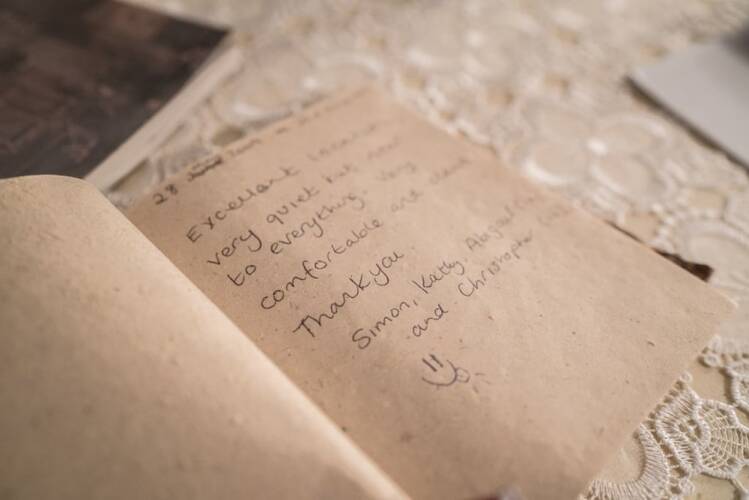 28
Excellent location
very quiet but near
to everything. Very
comfortable and clean
Thankyou
Simon, Kathy, Abigail
and Christopher